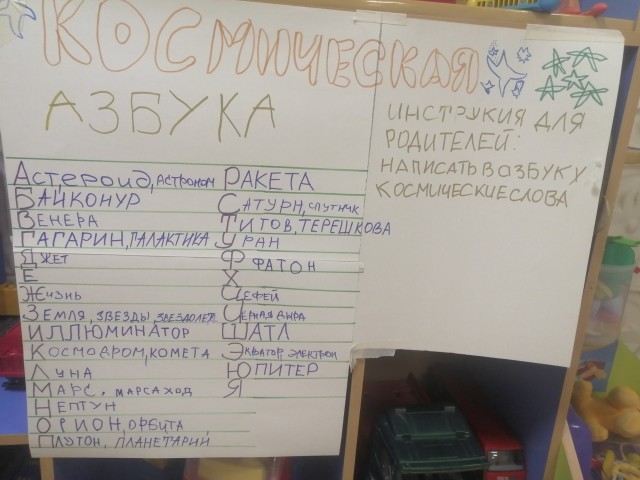 КОСМИЧЕСКАЯ
АЗБУКА
АСТЕРОИД, АСТРОНОМ
БАЙКОНУР
ВЕНЕРА
ГАГАРИН, ГАЛАКТИКА
ДЖЕТ
Е
ЖИЗНЬ
ЗЕМЛЯ, ЗВЕЗДЫ, ЗВЕЗДОЛЕТ
ИЛЛЮМИНАТОР
КОСМОДРОМ, КОМЕТА
ЛУНА
МАРС, МАРСАХОД
НЕПТУН
ОРИОН, ОРБИТА
ПЛУТОН, ПЛАНЕТАРИЙ
РАКЕТА
САТУРН, СПУТНИК
ТИТОВ, ТЕРЕШКОВА
УРАН
ФАТОН
Х
ЦЕФЕЙ
ЧЕРНАЯ ДЫРА
ШАТЛ
ЭКВАТОР ЭЛЕКТРОН
ЮПИТЕР
Я
ИНСТРУКИЯ ДЛЯ
РОДИТЕЛЕЙ:
НАПИСАТЬ В ОЗБУКУ
КОСМИЧЕСКИЕ СЛОВА